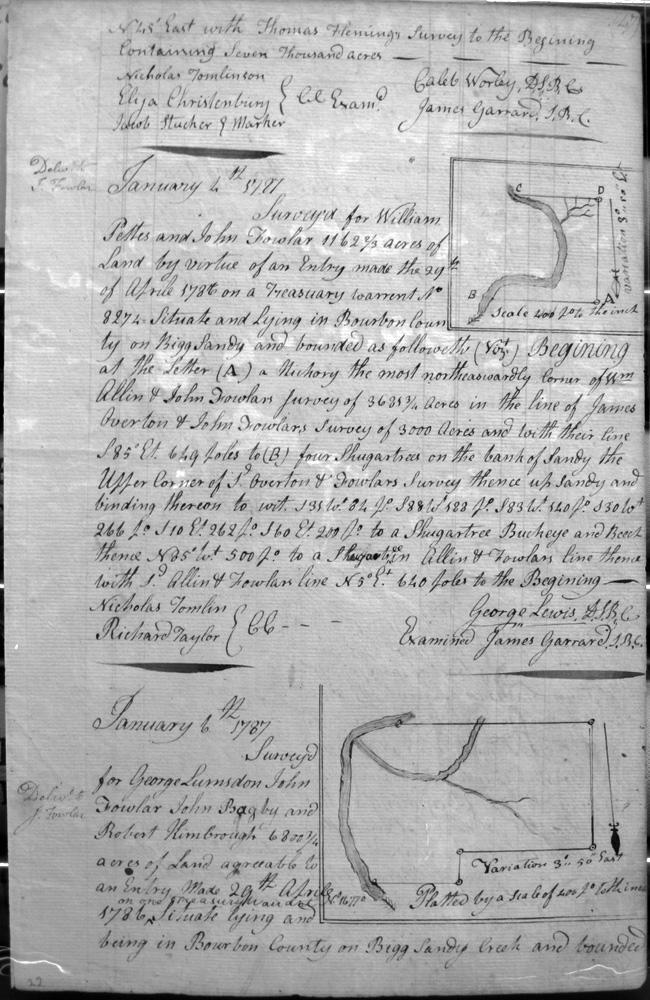 N 45° East with Thomas Flemings Survey to the Begining
Containing Seven Thousand acres
Nicholas Tomlinson
Elija Christenbury } CC Examd
Jacob Stucher & Marker
Caleb Worley, D.S.B.C
James Garrard, S.B.C.
Delivd to
J. Fowlar
January 4th 1787
Survey'd for William
Pettes and John Fowlar 1162 2/3 acres of
Land by virtue of an Entry made the 29th
of Aprile 1786 on a Treasuary warrent No
8274 Situate and Lying in Bourbon Coun
ty on Bigg Sandy and bounded as followeth (Vizt) Begining
at the Letter (A) a Hickory the most northeaswardly Corner of Wm
Allin & John Fowlars Survey of 3635 3/4 Acres in the line of James
Overton & John Fowlars Survey of 3000 Acres and with their line
S 85° Et. 649 poles to (B) four Shugartrees on the bank of Sandy the
Upper Corner of Sd Overton & Fowlars Survey thence up Sandy and
binding thereon to wit. S31 Wt. 84 po S88 Wt 188 po S83 Wt 140 po S30 Wt
266 po S10 Et. 262 po S60 Et. 200 po to a Shugartree Bucheye and Beech
thence N 85° Wt 500 po to a Shugartree in Allin & Fowlars line thence
with Sd Allin & Fowlars line N 5° Et. 640 poles to the Begining
Nicholas Tomlin
Richard Taylor } CC
George Lewis, D.S.B.C
Examined James Garrard, S.B.C.
C
D
B
A
Variation 3° 50' Et
Scale 400 po to the inch
Delivd to
J. Fowlar
January 6th 1787
Survey'd
for George Lumsdon John
Fowlar John Bagby and
Robert Kimbrough 6800 3/4
acres of Land agreeable to
an Entry Made 29th Aprile
on one Treasury warrant No 16770
1786 Situate lying and
being in Bourbon County on Bigg Sandy Creek and bounded
Variation 3° 50' East
Platted by a Scale of 400 po to the inch
22